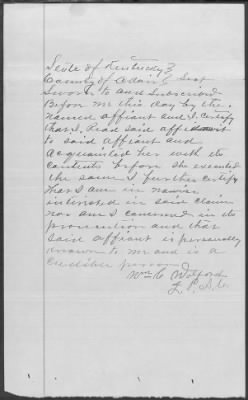 State of Kentucky }
County of Adair } Sect
Sworn to and Subscribed
Before me this day by the
named affiant and I certify
that I Read said affidavit
to said affiant and
Acquainted her with its
contents before she executed
the same I further certify
that I am in nowise
interested in said claim
nor am I concerned in its
prosecution and that
said affiant is personally
known to me and is a
credible person
Wm C Wolford
J. P. A. C.